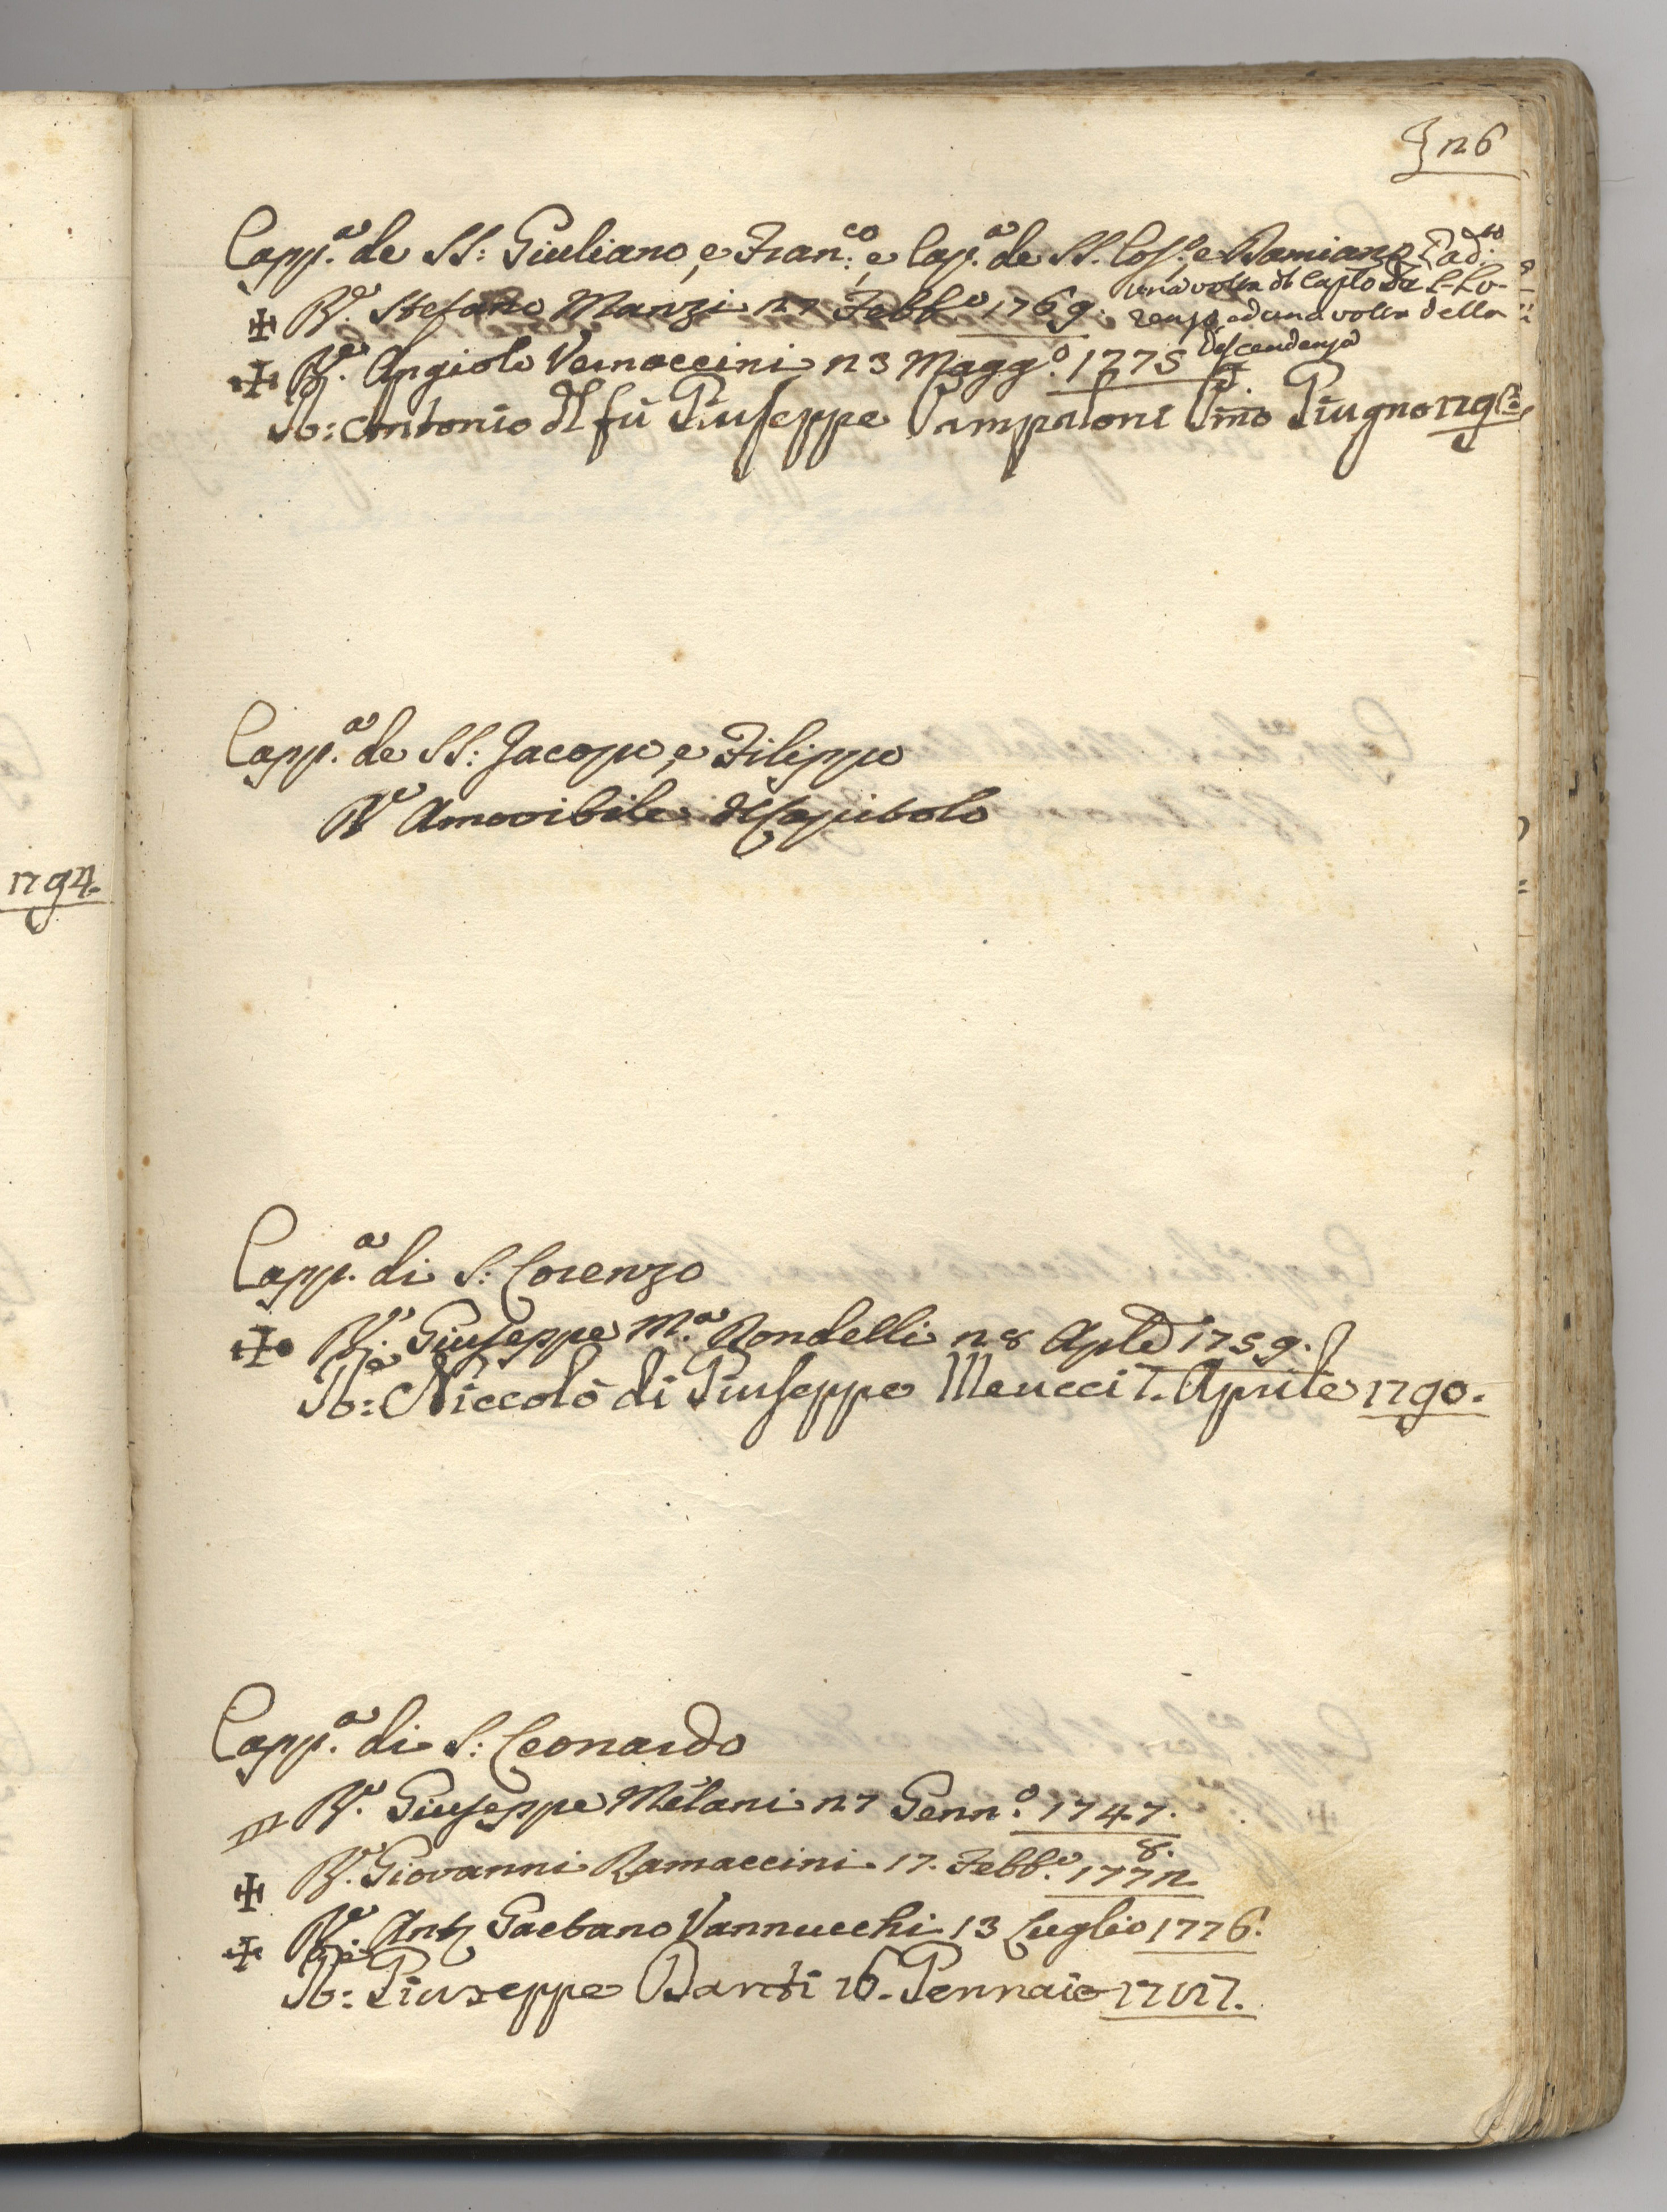 26
Capp.a de SS: Giuliano, e Fran.co e Cap.a de SS. Cos.o, e Damiano Pad.to
una volta dl Capto da S. Lo-
renzo, ed una volta della
descendenza
R.e Stefano Manzi 27 Febb.o 1769.
R.e Angiolo Vernaccini 23 Magg.o 1775
Antonio dl fù Giuseppe Campaloni Pmo Giugno
Capp.a de SS: Jacopo, e Filippo
R.e Amovibile dl Capitolo
1794.
Capp.a di S: Lorenzo
R.e Giuseppe M.a Rondelli 28 Aple 1759.
Niccolò di Giuseppe Meucci Aprile 1790.
Capp.a di S: Leonardo
R.e Giuseppe Melani 27 Genn.o 1747.
8.
R.e Giovanni Ramaccini 17. Febb.o 1772
R.e Ant.o Gaetano Vannucchi 13 Luglio 1776.
Giuseppe 26. Gennaio